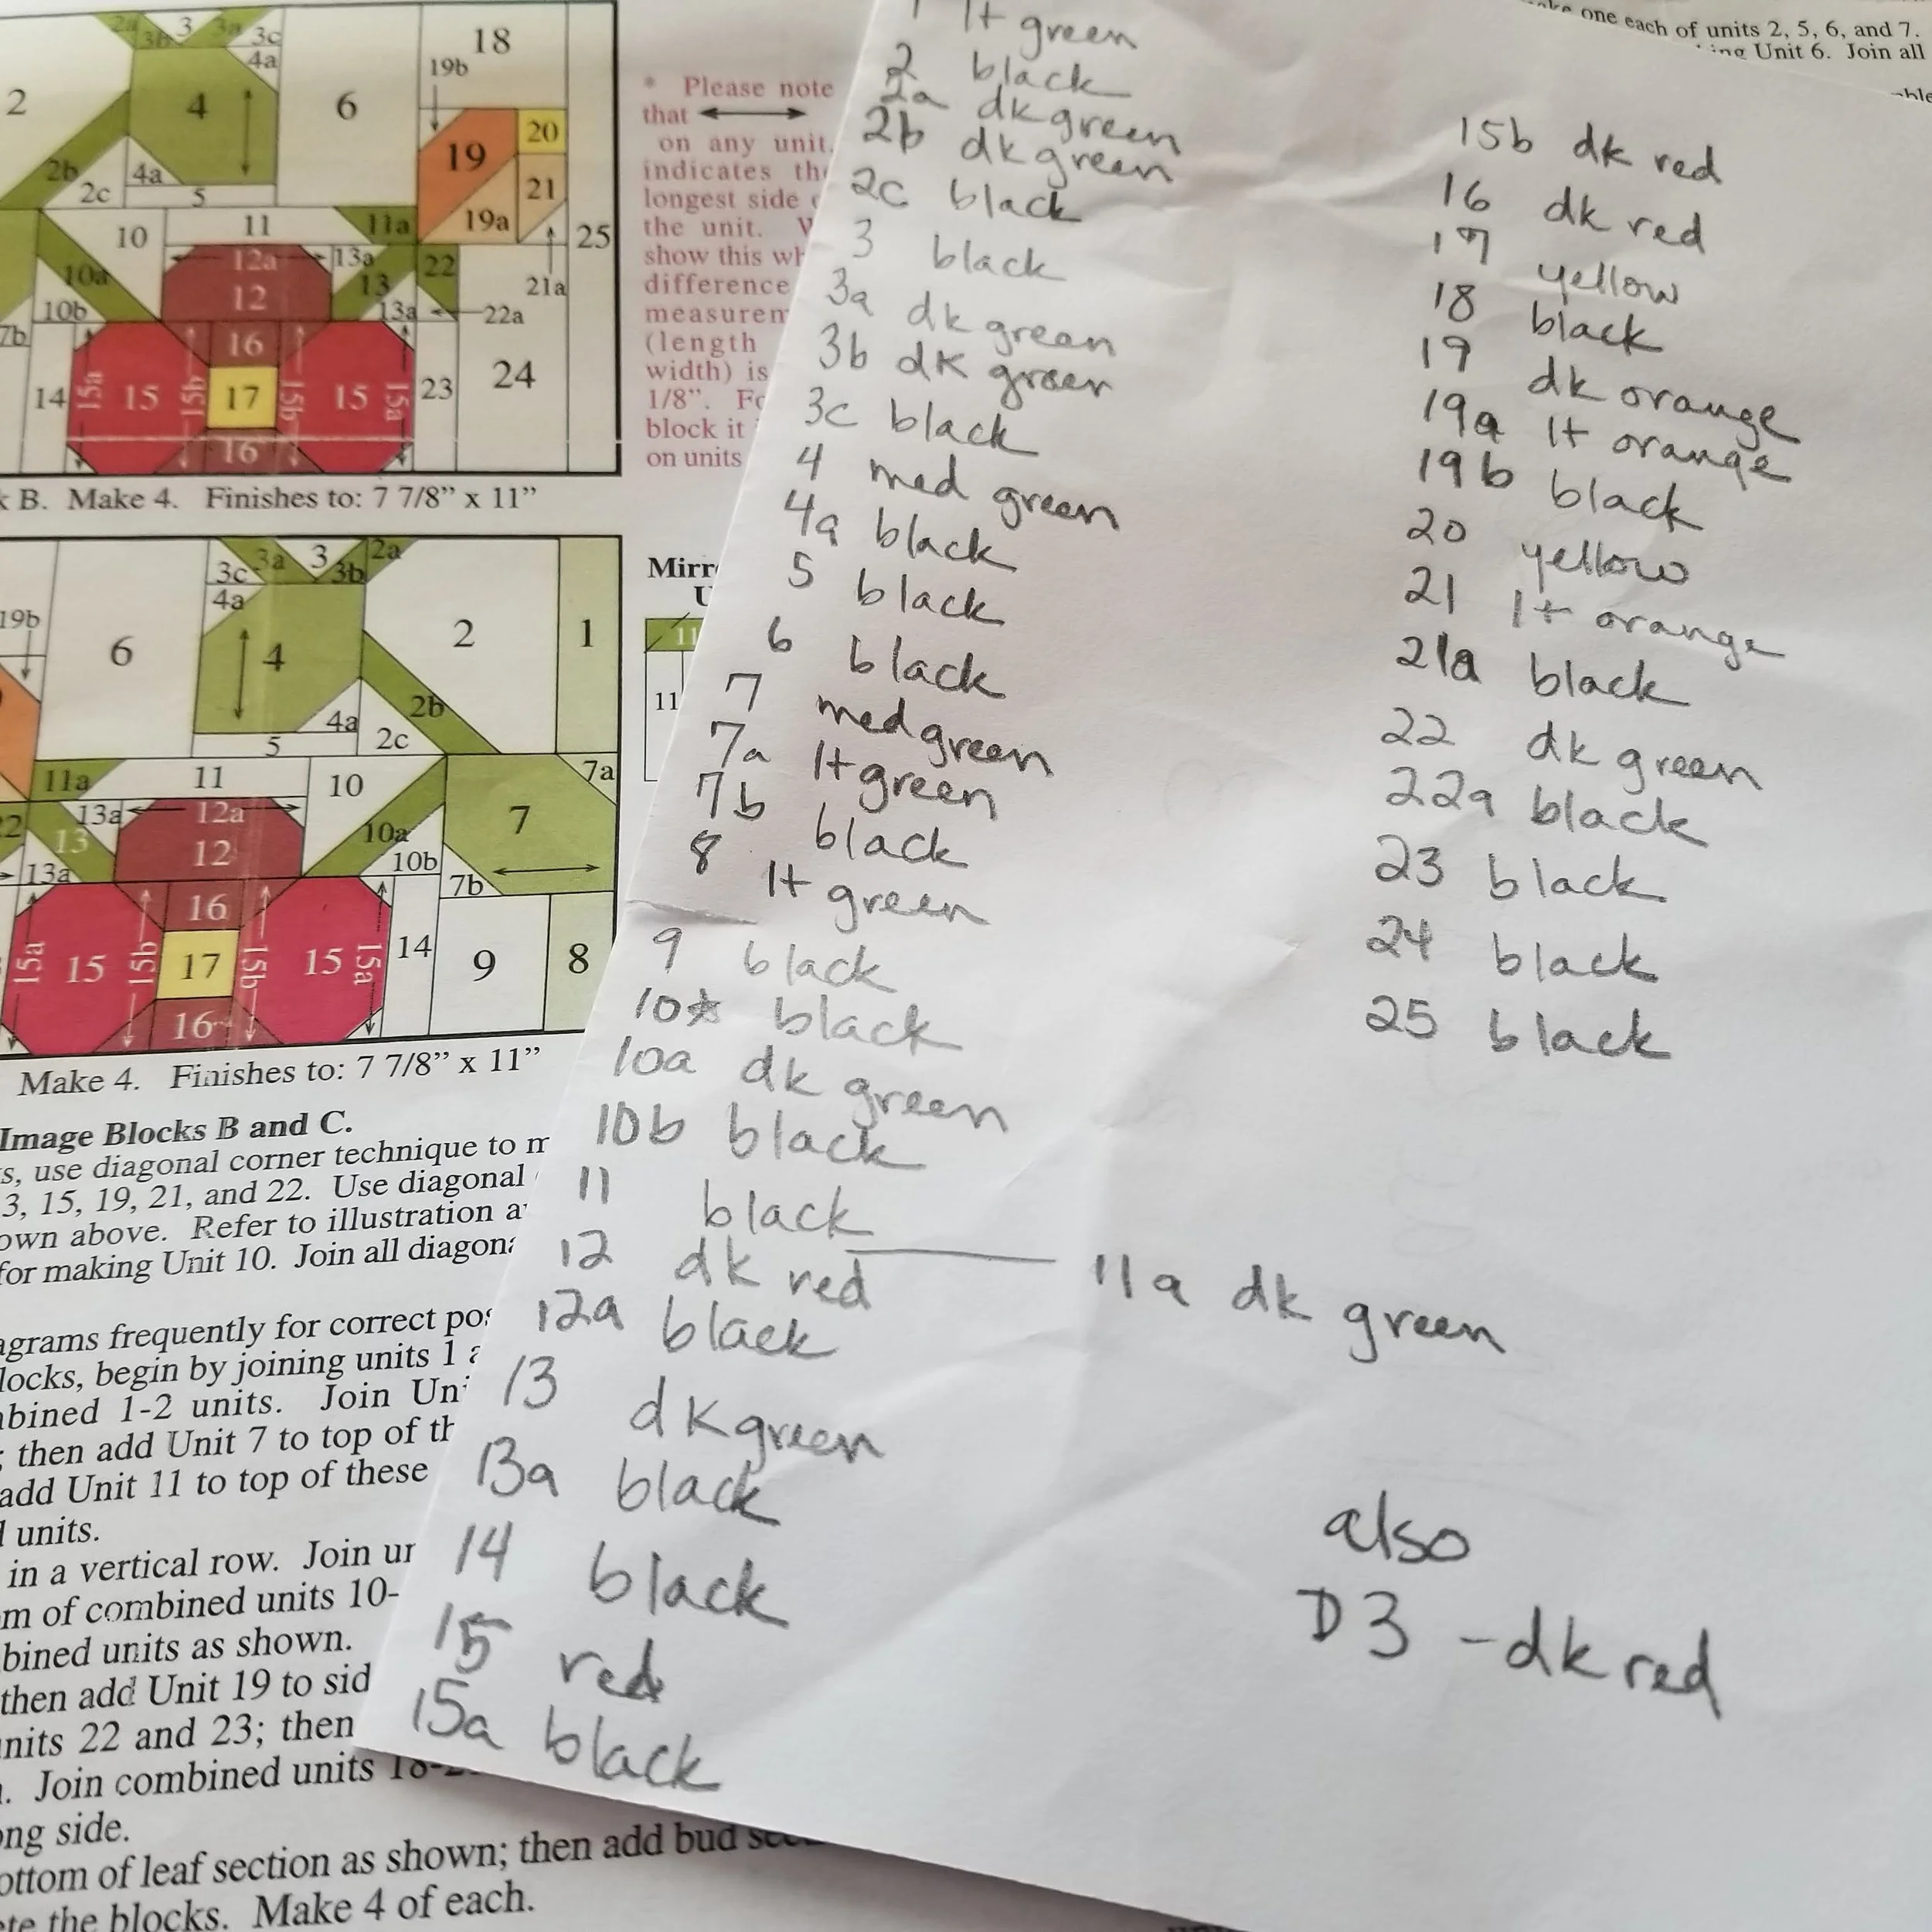 2a 3b 3 3a 3c
4a
2 4 6 18
19b
19 20
2b 4a 21
2c 5 19a
10 11 11a 25
12a 13a 22
10a 12 13 21a
10b 13a 22a
7b 16
14 15a 15 15b 17 15b 15 15a 23 24
16
B. Make 4. Finishes to: 7 7/8” x 11”
* Please note
that
on any unit
indicates
longest side
the unit.
show this
difference
(length
width) is
1/8”.
block it
on units
3c 3a 3 3b 2a
4a
19b 6 4 2 1
2b
4a
5 2c
11a 11 10 7a
13a 12a 7
13 12 10a
13a 10b
16 7b
15a 15 15b 17 15b 15 15a 14 9 8
16
Make 4. Finishes to: 7 7/8” x 11”
11
11
Image Blocks B and C.
use diagonal corner technique to
3, 15, 19, 21, and 22. Use diagonal
above. Refer to illustration
for making Unit 10. Join all
frequently for correct
begin by joining units 1
1-2 units. Join
then add Unit 7 to top of
add Unit 11 to top of these
units.
in a vertical row. Join
of combined units 10-
units as shown.
then add Unit 19 to
22 and 23; then
Join combined units 18-
side.
of leaf section as shown; then add bud
the blocks. Make 4 of each.
one each of units 2, 5, 6, and 7.
Unit 6. Join all
1 lt green
2 black
2a dk green
2b dk green
2c black
3 black
3a dk green
3b dk green
3c black
4 med green
4a black
5 black
6 black
7 med green
7a lt green
7b black
8 lt green
9 black
10☆ black
10a dk green
10b black
11 black
11a dk green
12 dk red
12a black
13 dk green
13a black
14 black
15 red
15a black
15b dk red
16 dk red
17 yellow
18 black
19 dk orange
19a lt orange
19b black
20 yellow
21 lt orange
21a black
22 dk green
22a black
23 black
24 black
25 black
also
D3 - dk red